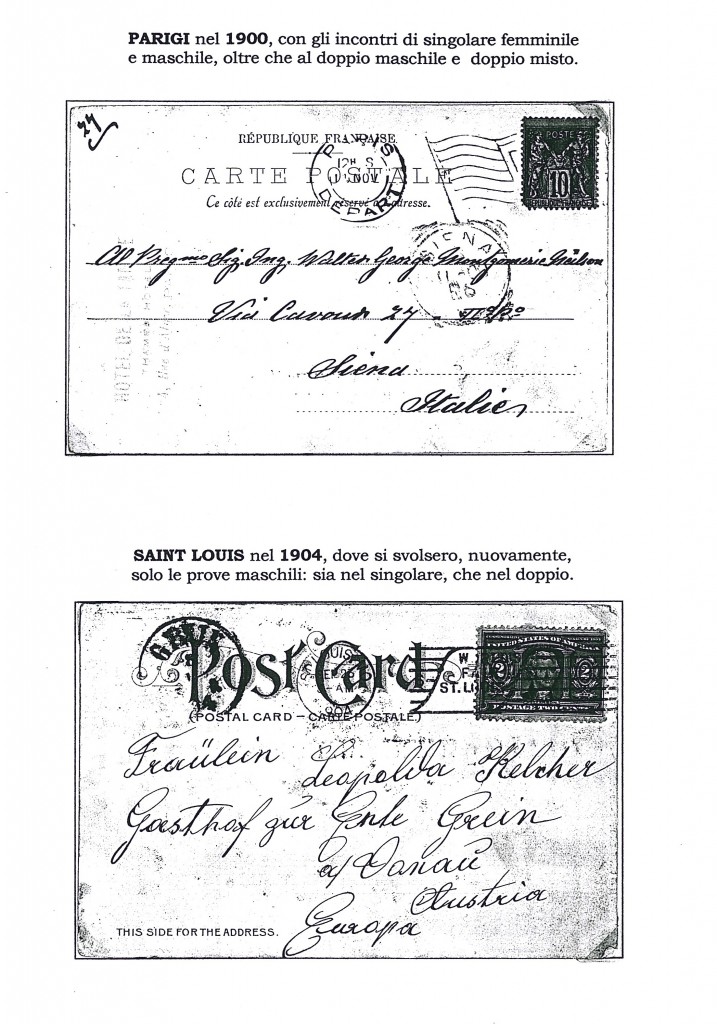 PARIGI nel 1900, con gli incontri di singolare femminile
e maschile, oltre che al doppio maschile e doppio misto.
24
RÉPUBLIQUE FRANÇAISE
CARTE POSTALE
Ce côté est exclusivement réservé à l'adresse.
PARIS
12H S
1 NOV
DEPART
POSTE
10
SIENA
Al Pregmo Sig. Ing. Walter George Montgomerie Neilson
Via Cavour 24
Siena
Italie
HOTEL DE
SAINT LOUIS nel 1904, dove si svolsero, nuovamente,
solo le prove maschili: sia nel singolare, che nel doppio.
GREIN
Post Card
(POSTAL CARD – CARTE POSTALE.)
ST. LOUIS
AM
1904
W
ST. LO
UNITED STATES OF AMERICA
2 2
POSTAGE TWO CENTS
Fräulein Leopolda Kelcher
Gasthof zur Ente Grein
a/Donau
Austria
Europa
THIS SIDE FOR THE ADDRESS.